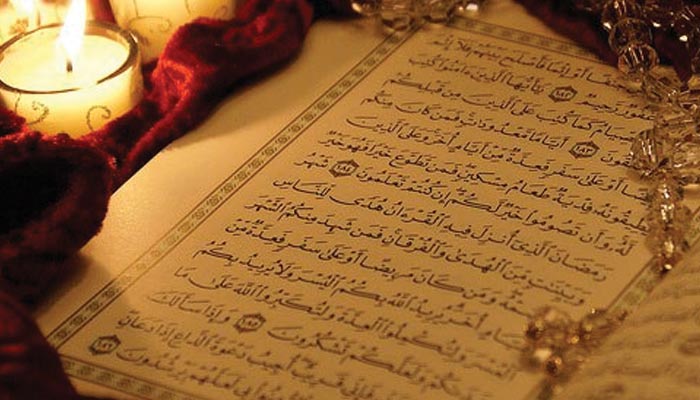 أَوْ إِثْمًا فَأَصْلَحَ بَيْنَهُمْ فَلَآ إِثْمَ
غَفُورٌ رَّحِيمٌ ١٨٢ يَٰٓأَيُّهَا ٱلَّذِينَ ءَامَنُوا۟ كُتِبَ
ٱلصِّيَامُ كَمَا كُتِبَ عَلَى ٱلَّذِينَ مِن قَبْلِكُمْ
تَتَّقُونَ ١٨٣ أَيَّامًا مَّعْدُودَٰتٍ فَمَن كَانَ مِنكُم
مَّرِيضًا أَوْ عَلَىٰ سَفَرٍ فَعِدَّةٌ مِّنْ أَيَّامٍ أُخَرَ وَعَلَى ٱلَّذِينَ
يُطِيقُونَهُۥ فِدْيَةٌ طَعَامُ مِسْكِينٍ فَمَن تَطَوَّعَ خَيْرًا فَهُوَ خَيْرٌ
لَّهُۥ وَأَن تَصُومُوا۟ خَيْرٌ لَّكُمْ إِن كُنتُمْ تَعْلَمُونَ ١٨٤ شَهْرُ
رَمَضَانَ ٱلَّذِىٓ أُنزِلَ فِيهِ ٱلْقُرْءَانُ هُدًى لِّلنَّاسِ
وَبَيِّنَٰتٍ مِّنَ ٱلْهُدَىٰ وَٱلْفُرْقَانِ فَمَن شَهِدَ مِنكُمُ ٱلشَّهْرَ
فَلْيَصُمْهُ وَمَن كَانَ مَرِيضًا أَوْ عَلَىٰ سَفَرٍ فَعِدَّةٌ مِّنْ
أَيَّامٍ أُخَرَ يُرِيدُ ٱللَّهُ بِكُمُ ٱلْيُسْرَ وَلَا يُرِيدُ بِكُمُ
ٱلْعُسْرَ وَلِتُكْمِلُوا۟ ٱلْعِدَّةَ وَلِتُكَبِّرُوا۟ ٱللَّهَ عَلَىٰ مَا
هَدَىٰكُمْ وَلَعَلَّكُمْ تَشْكُرُونَ ١٨٥ وَإِذَا سَأَلَكَ
فَإِنِّى قَرِيبٌ أُجِيبُ دَعْوَةَ ٱلدَّاعِ إِذَا دَعَانِ
بِى لَعَلَّهُمْ يَرْشُدُونَ ١٨٦